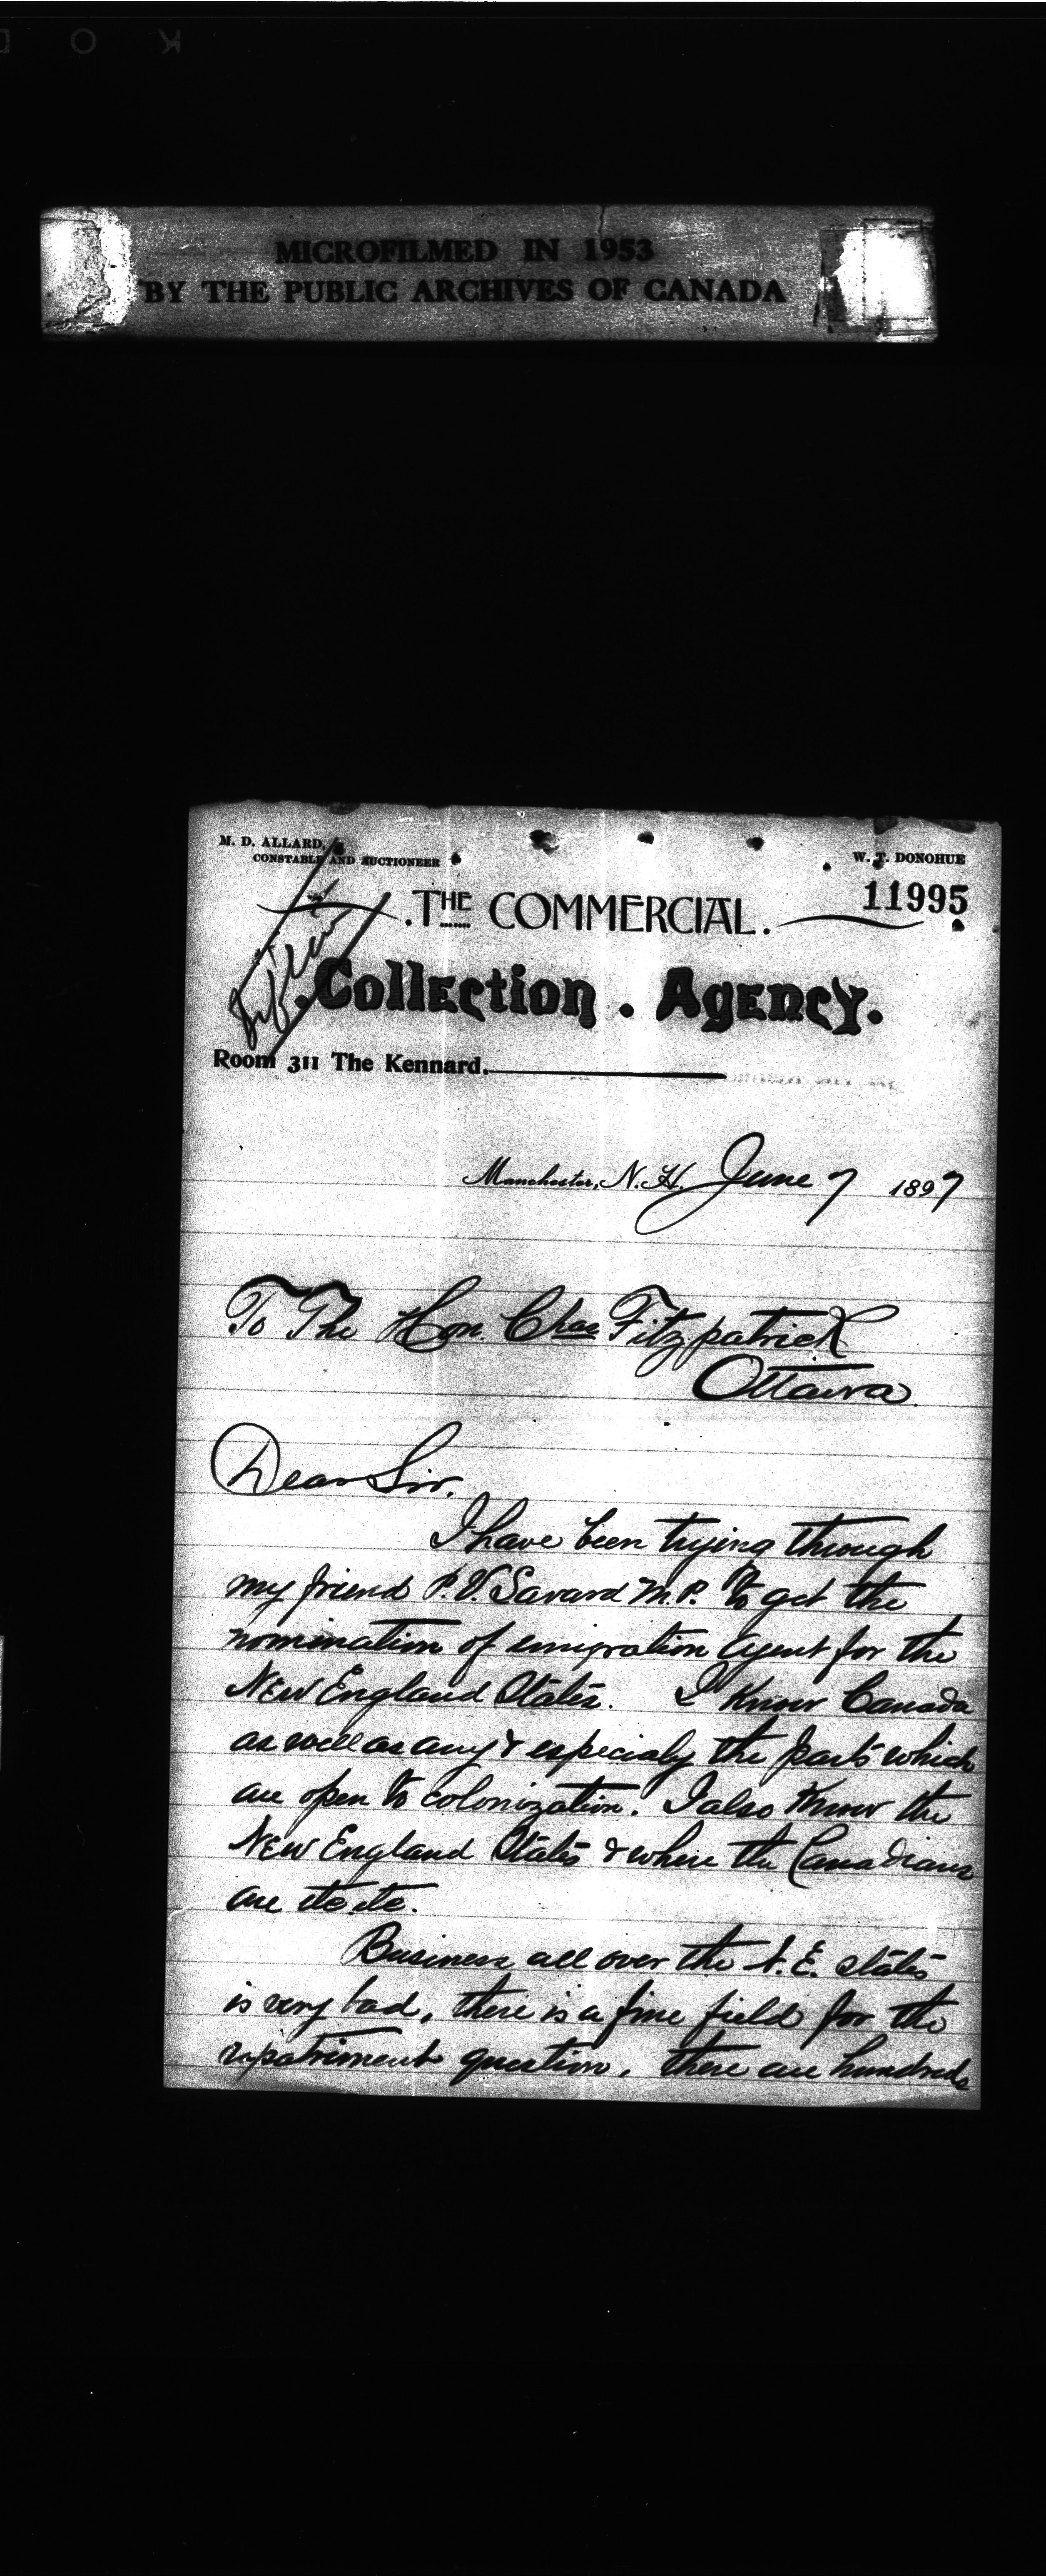 MICROFILMED IN 1953
BY THE PUBLIC ARCHIVES OF CANADA
M. D. ALLARD,
CONSTABLE AND AUCTIONEER
W. T. DONOHUE
11995
.THE COMMERCIAL.
Collection . Agency.
Room 311 The Kennard.
Manchester, N. H. June 7 1897
To The Hon. Chas Fitzpatrick
Ottawa
Dear Sir.
I have been trying through
my friend P. V. Savard M.P. to get the
nomination of emigration agent for the
New England States. I know Canada
as well as any & especialy the parts which
are open to colonization. I also know the
New England States & where the Canadians
are etc etc.
Business all over the N. E. states
is very bad, there is a fine field for the
repatriment question, there are hundreds